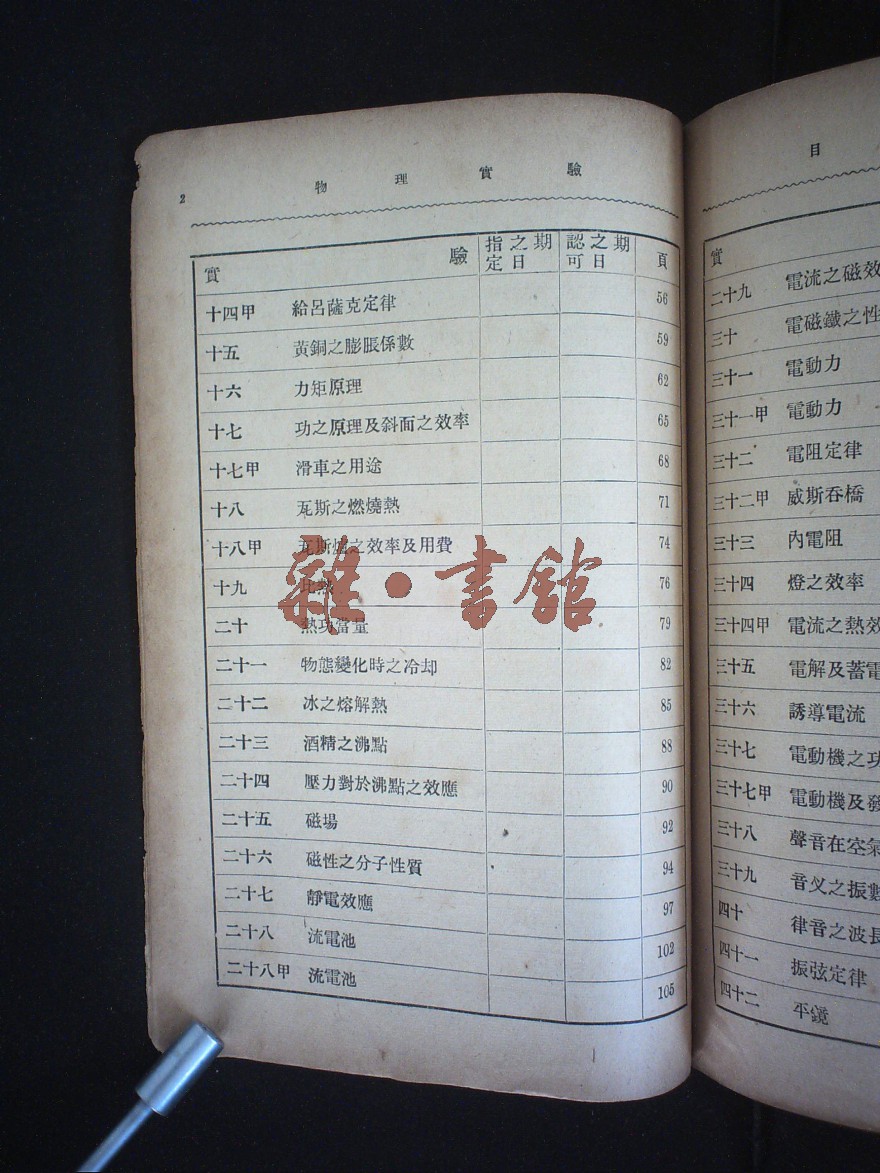 2 物理實驗
實驗 指定之日期 認可之日期 頁
十四甲 給呂薩克定律 56
十五 黃銅之膨脹係數 59
十六 力矩原理 62
十七 功之原理及斜面之效率 65
十七甲 滑車之用途 68
十八 瓦斯之燃燒熱 71
十八甲 瓦斯爐之效率及用費 74
十九 比熱 76
二十 熱功當量 79
二十一 物態變化時之冷却 82
二十二 冰之熔解熱 85
二十三 酒精之沸點 88
二十四 壓力對於沸點之效應 90
二十五 磁場 92
二十六 磁性之分子性質 94
二十七 靜電效應 97
二十八 流電池 102
二十八甲 流電池 105
雜·書館
目
實
二十九 電流之磁效
三十 電磁鐵之性
三十一 電動力
三十一甲 電動力
三十二 電阻定律
三十二甲 威斯吞橋
三十三 內電阻
三十四 燈之效率
三十四甲 電流之熱效
三十五 電解及蓄電
三十六 誘導電流
三十七 電動機之功
三十七甲 電動機及發
三十八 聲音在空氣
三十九 音叉之振數
四十 律音之波長
四十一 振弦定律
四十二 平鏡